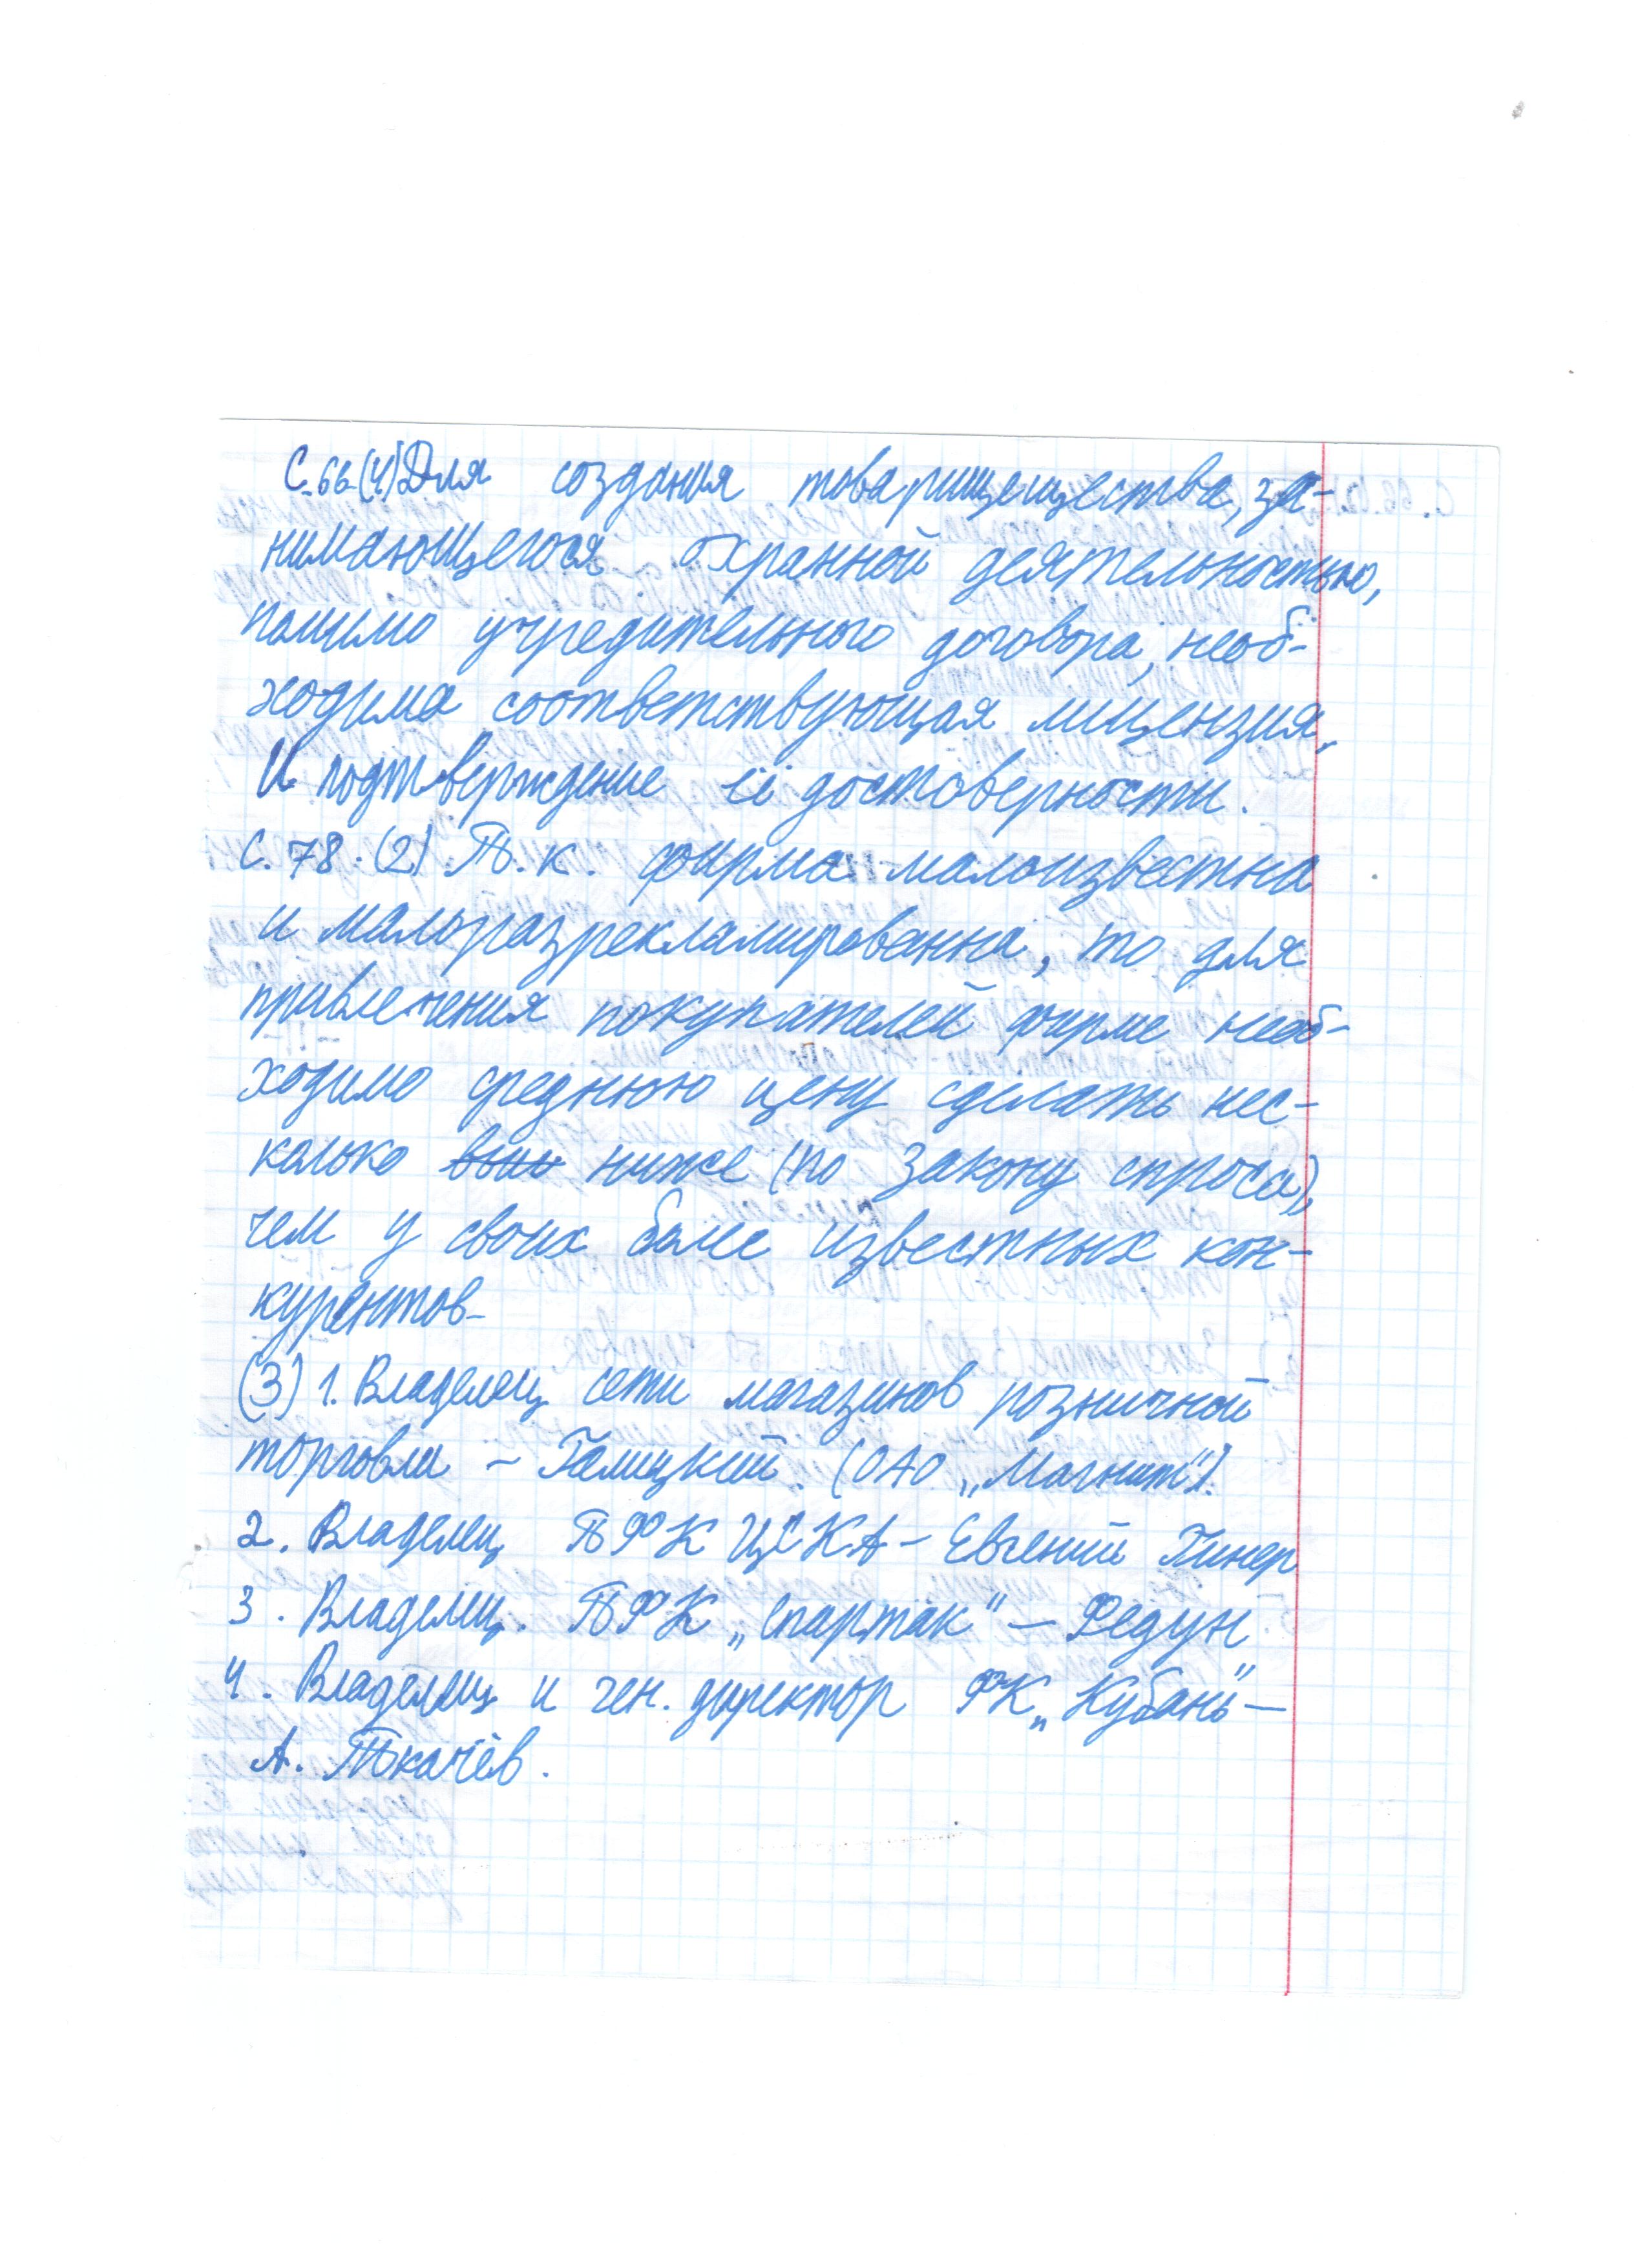 С.66(4) Для создания товарищещества, за-
нимающегося охранной деятельностью,
помимо учредительного договора, необ-
ходима соответствующая лицензия,
И подтверждение её достоверности.
С. 78. (2) Т. к. фирма малоизвестна
и малоразрекламированна, то для
привлечения покупателей фирме необ-
ходимо среднюю цену сделать нес-
колько ниже (по закону спроса),
чем у своих более известных кон-
курентов.
(3) 1. Владелец сети магазинов розничной
торговли - Галицкий. (ОАО „Магнит").
2. Владелец ПФК ЦСКА - Евгений Гинер
3. Владелец. ПФК „Спартак" - Федун
4. Владелец и ген. директор ФК „Кубань" -
А. Ткачёв.